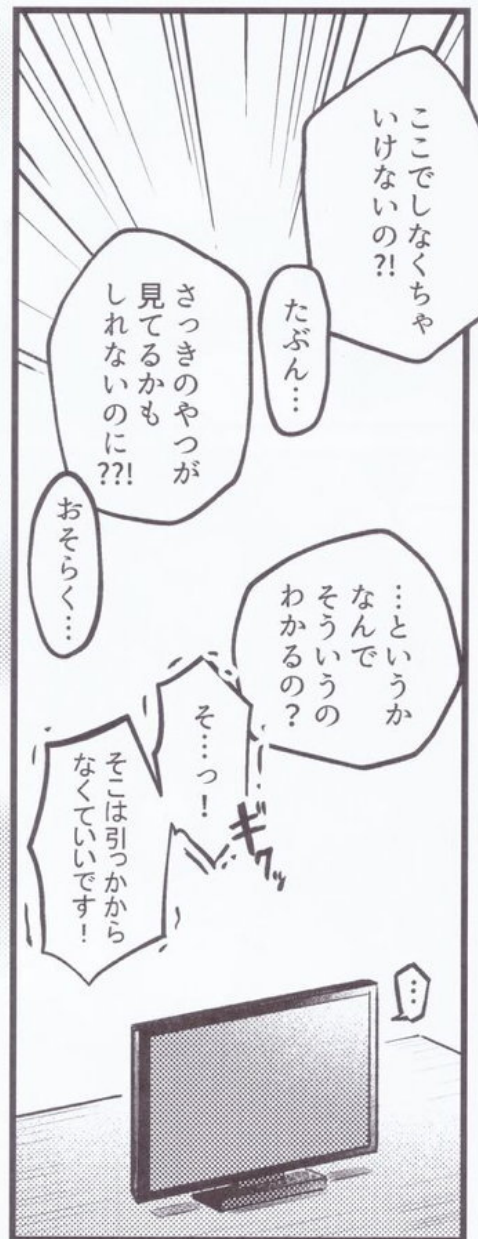 ここでしなくちゃ
いけないの?!
たぶん…
さっきのやつが
見てるかも
しれないのに
??!
おそらく…
…というか
なんで
そういうの
わかるの？
そ…っ！
ギクッ
そこは引っかから
なくていいです！
…